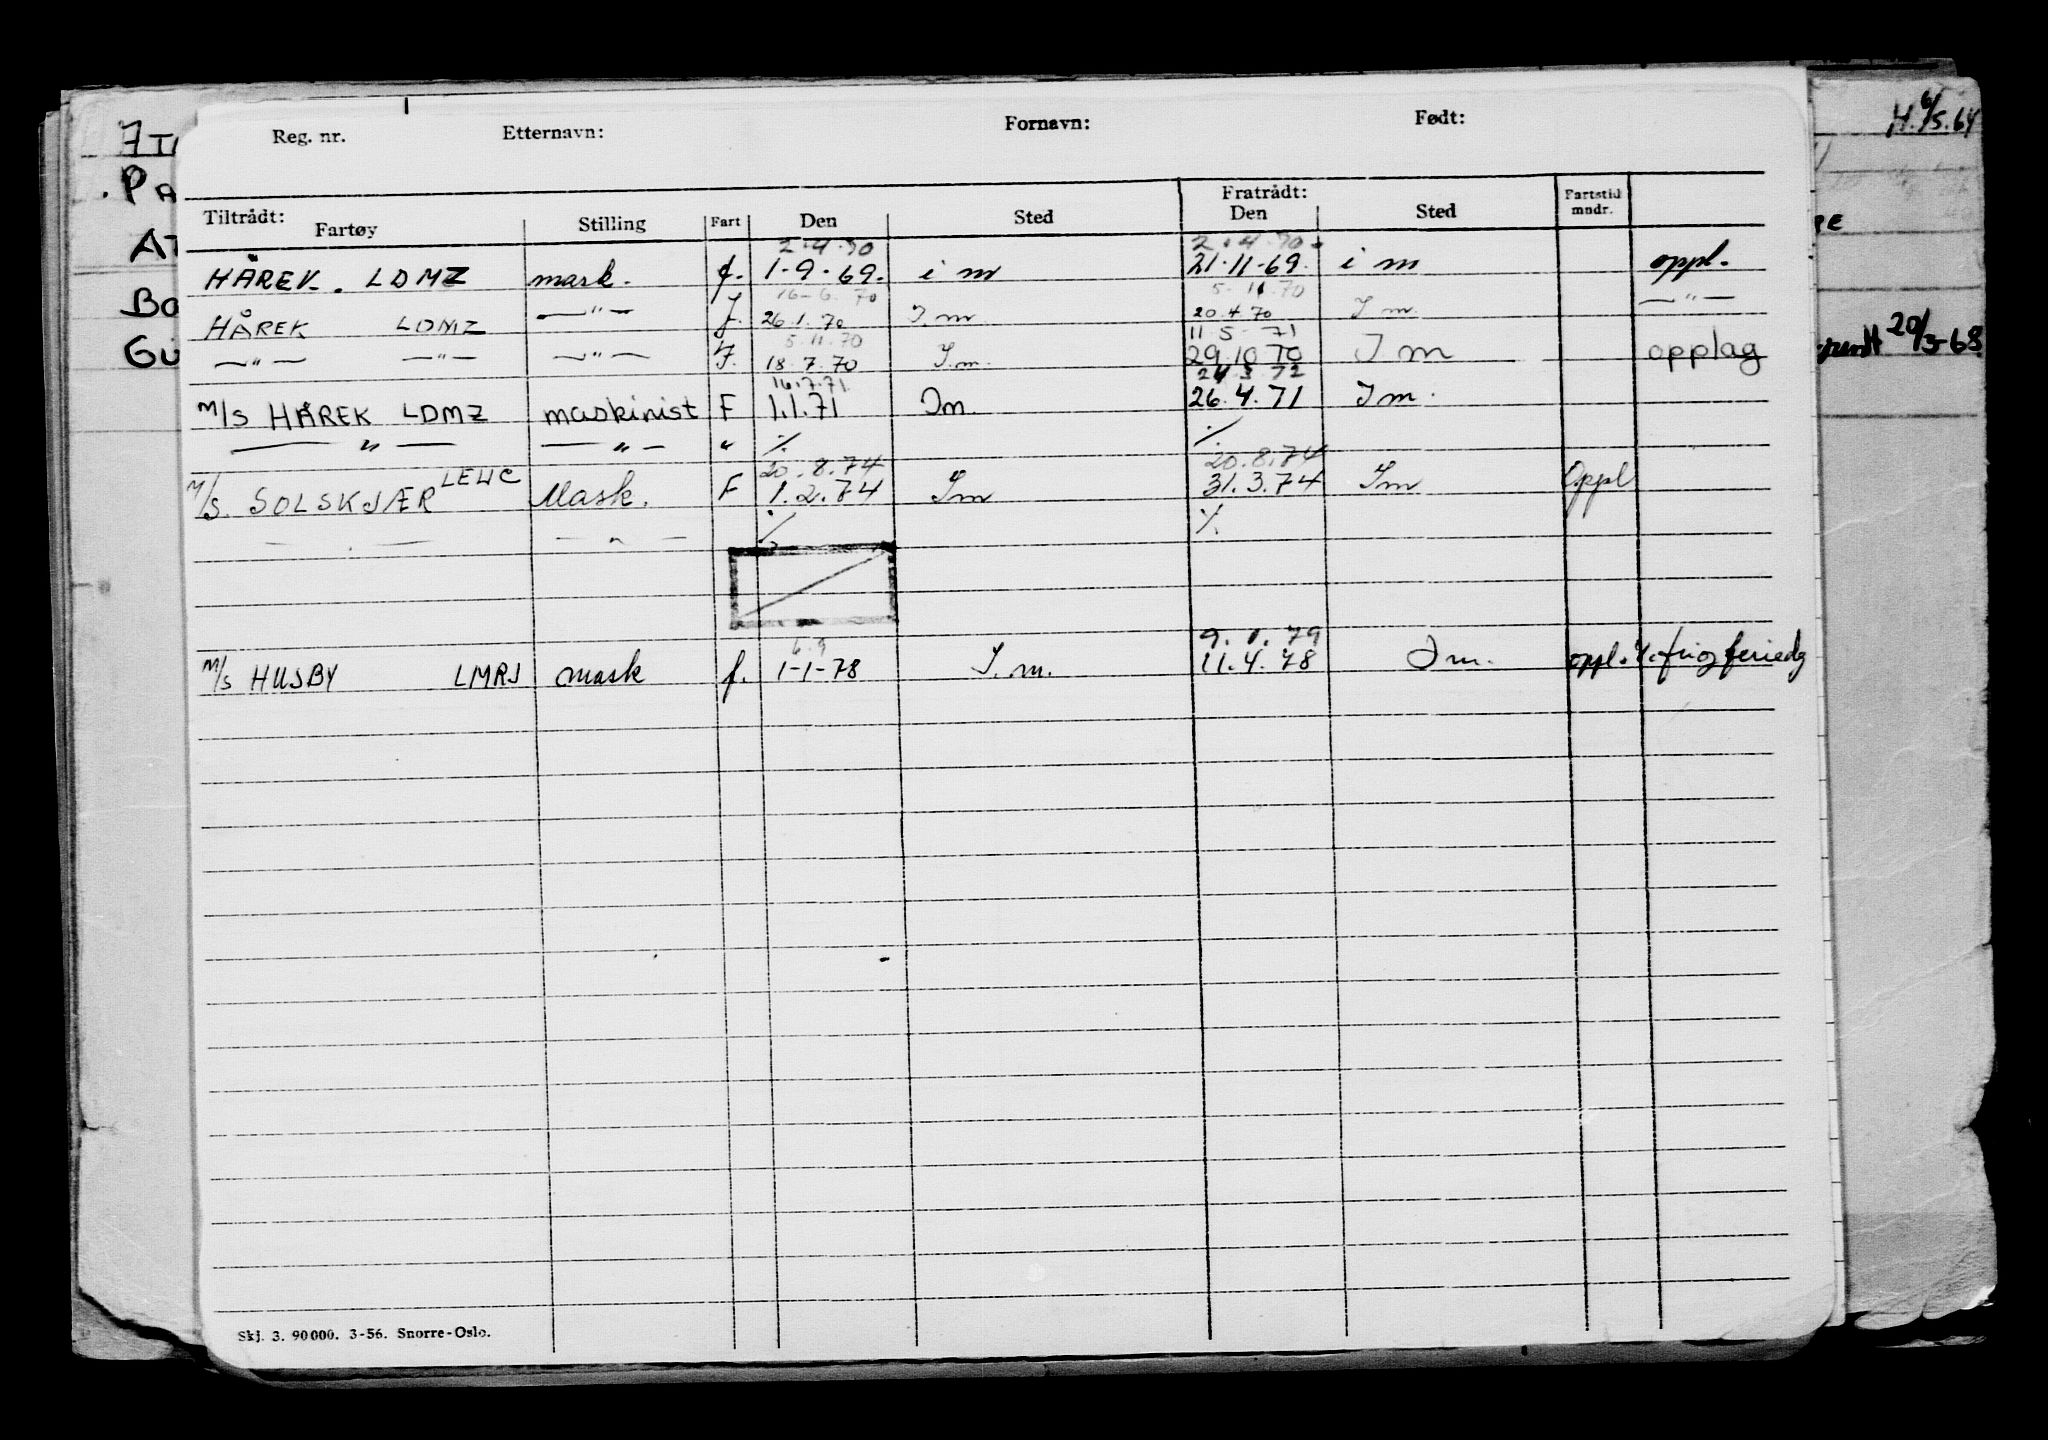 Reg. nr. Etternavn: Fornavn: Født:
Tiltrådt: Fratrådt:
Fartøy Stilling Fart Den Sted Den Sted Fartstid mndr.
2.4.70 2.4.70
HÅREK. LDMZ mask. f. 1-9-69. i m 21-11-69. i m oppl.
16-6.70 5.11.70
HÅREK LDMZ —"— F. 26.1.70 I.m 20.4.70 I m. —"—
5.11.70 11 5-71
—"— —"— —"— F. 18.7.70 I.m. 29.10 70 I m opplag
16.7.71 24 3 72
M/S HÅREK LDMZ maskinist F 1.1.71 Im. 26.4.71 I m.
— " — — " — " ./. ./.
20.8.74 20.8.74
M/S. SOLSKJÆR LEHC Mask. F 1.2.74 Im 31.3.74 Im Oppl
— " — — " — ./. ./.
6.9 9.1.79
M/S HUSBY LMRJ mask f. 1-1-78 I.m. 11.4.78 I m. oppl.
Skj. 3. 90000. 3-56. Snorre-Oslo.
H. 6/5.64
20/3-68